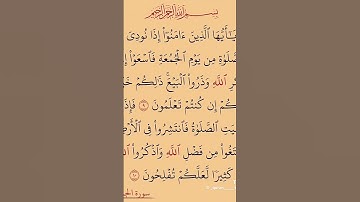 بسم الله الرحمن الرحيم
يَـٰٓأَيُّهَا ٱلَّذِينَ ءَامَنُوٓا۟ إِذَا نُودِىَ
لصَّلَوٰةِ مِن يَوْمِ ٱلْجُمُعَةِ فَٱسْعَوْا۟
كْرِ ٱللَّهِ وَذَرُوا۟ ٱلْبَيْعَ ۚ ذَٰلِكُمْ خَ
كُمْ إِن كُنتُمْ تَعْلَمُونَ ٩ فَإِذَ
يَتِ ٱلصَّلَوٰةُ فَٱنتَشِرُوا۟ فِى ٱلْأَرْ
تَغُوا۟ مِن فَضْلِ ٱللَّهِ وَٱذْكُرُوا۟
كَثِيرًا لَّعَلَّكُمْ تُفْلِحُونَ ١٠
سورة الج